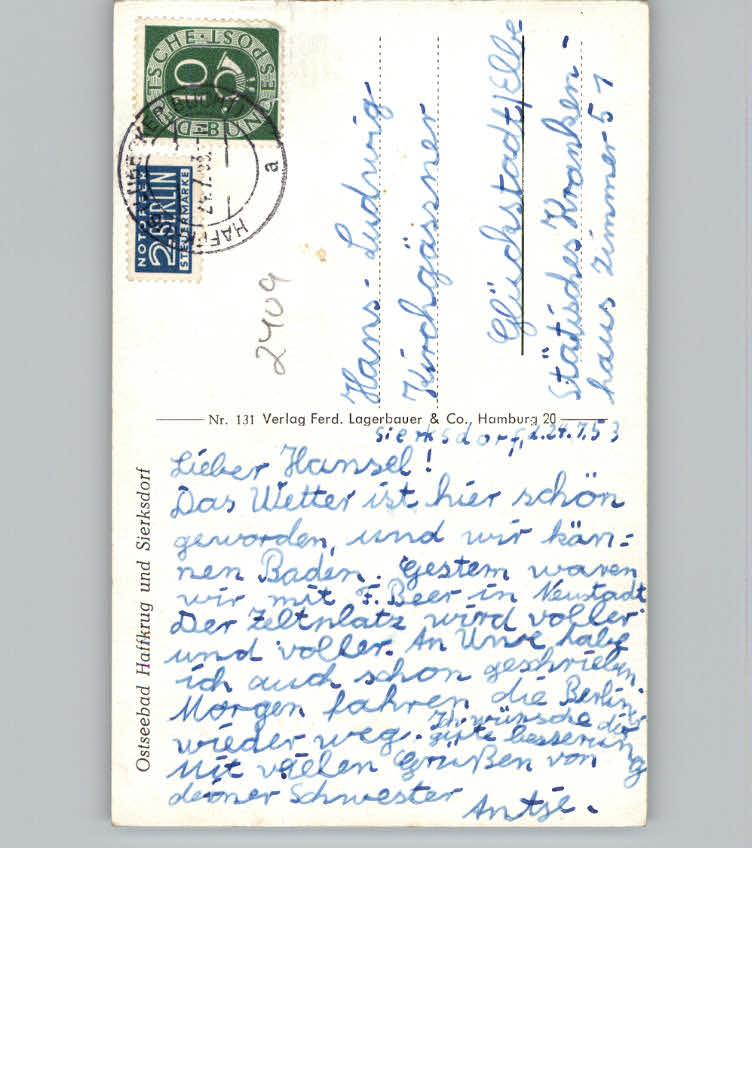 DEUTSCHE BUNDESPOST
10
NOTOPFER
2 BERLIN
STEUERMARKE
a
2409
Hans-Ludwig
Kirchgässner
Glückstadt/Elbe
Städtisches Kranken-
haus Zimmer 51
Nr. 131 Verlag Ferd. Lagerbauer & Co., Hamburg 20
Ostseebad Haffkrug und Sierksdorf
Sierksdorf, 24.7.53
Lieber Hansel!
Das Wetter ist hier schön
geworden, und wir kän=
nen Baden. Gestern waren
wir mit F. Beer in Neustadt
Der Zeltplatz wird voller
und voller. An habe
ich auch schon geschrieben.
Morgen fahren die Berliner
wieder weg. Ich wünsche dir
gute besserung
Mit vielen Grüßen von
deiner Schwester
Antje.